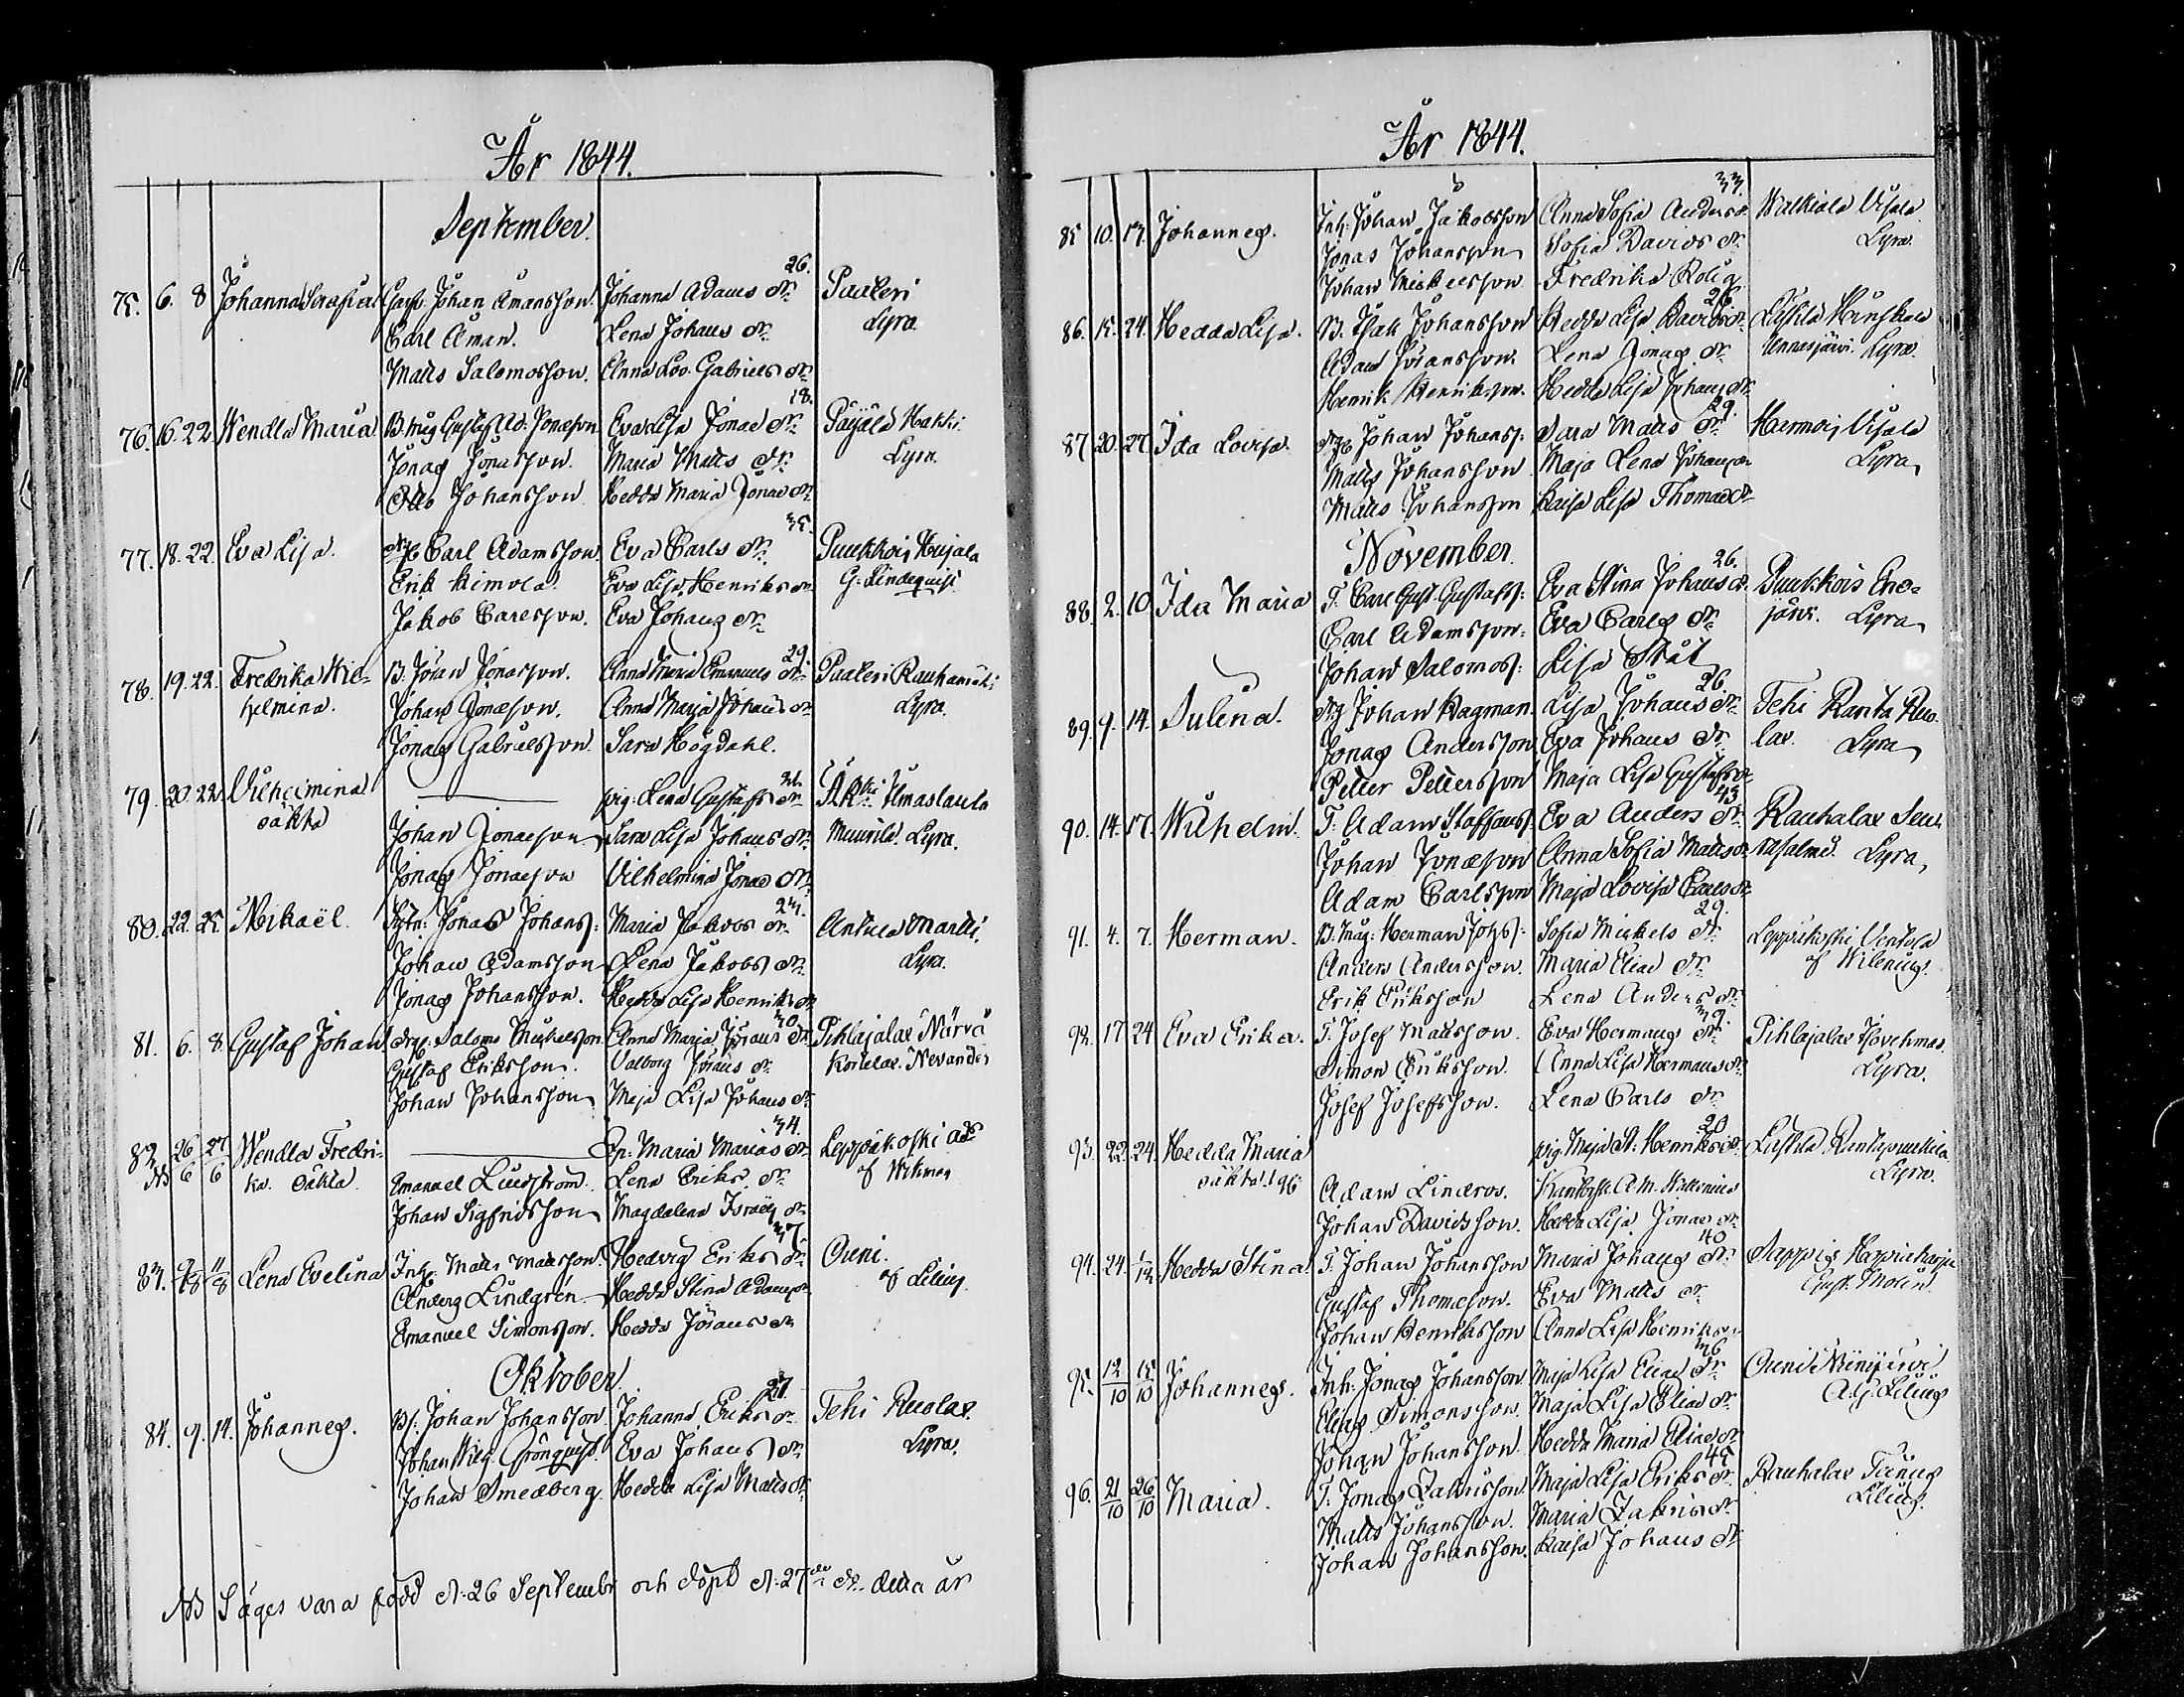 År 1844.
September.
26.
75. 6. 8 Johanna Serafia Johan Åmansson. Johanna Adams dr. Paaleri
Carl Åman. Lena Johans dr. Lyra.
Matts Salomosson. Anna Lov. Gabriels dr.
18.
76. 16. 22 Wendla Maria B. måg Gustaf Ad. Jonasson Eva Lisa Jonas dr.
Jonas Jonasson. Maria Matts dr. Lyra.
Otto Johansson Hedda Maria Jonas dr.
35.
77. 18. 22. Eva Lisa. Carl Adamsson. Eva Carls dr. Puukkois Hujala
Erik Kimola. Eva Lisa Henriks dr. G. Lindequist.
Jakob Carlsson. Eva Johans dr.
29.
78. 19. 22. Fredrika Wil- B. Jonasson. Anna Maria Emanuels dr. Paaleri Rauhamäki
helmina. Johan Jonasson. Anna Maja Johans dr. Lyra.
Jonas Gabrielsson. Sara Högdahl.
79. 20. 22. Vilhelmina pig. Lena Gustafs dr.
oäkta Johan Jonasson Sara Lisa Johans dr. Muurila Lyra.
Jonas Jonasson Vilhelmina Jonas dr.
80. 22. 25. Mikaël. Jonas Johans: Maria Jakobs dr. Anttila Martti.
Johan Adamsson Lena Jakobs dr. Lyra.
Jonas Johansson. Hedda Lisa Henriks dr.
30
81. 6. 8. Gustaf Johan Salomo Mickelsson Anna Maja Görans dr. Pihlajalax Närvä
Gustaf Eriksson. Valborg Görans dr. Nevander
Johan Johansson Maja Lisa Johans dr.
34.
82. 26/6 27/6 Wendla Fredri- In. Maria Marias dr. Leppäkoski
NB ka. oäkta. Emanuel Lundström. Lena Eriks dr. af Wikman
Johan Sigfridsson Magdalena Israels dr.
37
83. Lena Evelina Inh. Matts Matsson. Hedvig Eriks dr. Oreni.
Anders Lindgrén Hedda Stina Adams dr. af Lilius.
Emanuel Simonsson. Hedda Görans dr.
Oktober.
27.
84. 9. 14. Johannes. Johan Johansson. Johanna Eriks dr. Tehi Ruolax.
Johan Wilh. Grönquist. Eva Johans dr. Lyra.
Johan Smedberg. Hedda Lisa Matts dr.
NB Säges vara född d. 26 Septembr och döpt d. 27de detta år
År 1844.
33.
85. 10. 13. Johannes. Inh. Johan Jakobsson Anna Sofia Anders dr.
Jonas Johansson Sofia Davids dr. Lyra.
Johan Mickelsson Fredrika Rolig
26.
86. 15. 24. Hedda Lisa. B. Isak Johansson Hedda Lisa Davids dr.
Adam Göransson. Lena Jonas dr. Lyra.
Henrik Henriksson. Hedda Lisa Johans dr.
29.
87 20. 27. Ida Lovisa. Johan Johanss: Sara Matts dr.
Matts Johansson Maja Lena Johans dr. Lyra
Matts Johansson Kaisa Lisa Thomas dr.
November.
26.
88. 2. 10 Ida Maria T. Carl Gust. Gustafs: Eva Stina Johans dr. Puukkois Eno-
Carl Adamsson. Eva Carls dr. järvi. Lyra
Johan Salomos: Lisa Stål
26
89. 9. 14. Sulena. Johan Hagman. Lisa Johans dr. Tehi Ranta Ruo-
Jonas Andersson Eva Johans dr. lax. Lyra
Petter Pettersson Maja Lisa Gustafs dr.
43
90. 14. 17. Wilhelm. T. Adam Staffans: Eva Anders dr. Rauhalax
Johan Jonasson Anna Sofia Matts dr. Lyra,
Adam Carlsson Maja Lovisa Carls dr.
29.
91. 4. 7. Herman. B. måg: Herman Johs: Sofia Mickels dr. Leppäkoski Ventola
Anders Andersson. Maria Elias dr. af Wilenius.
Erik Eriksson Lena Anders dr.
39.
92. 17 24 Eva Erika. T. Josef Matsson. Eva Hermans dr. Pihlajalax
Simon Eriksson. Anna Lisa Hermans dr. Lyra.
Josef Josefsson. Lena Carls dr.
20
93. 22. 24. Hedda Maria pig. Maja St. Henriks dr.
oäkta Adam Lindros. A. M. Lyra.
Johan Davidsson. Hedda Lisa Jonas dr.
40
94. 24. 1/12 Hedda Stina. T. Johan Johansson Maria Johans dr.
Gustaf Thomasson. Eva Matts dr. Gust. Molin
Johan Henriksson Anna Lisa Henriks dr.
36
95. 12/10 15/10 Johannes. Inh. Jonas Johansson. Maja Lisa Elias dr. Oreni Niinijärvi
Elias Simonsson. Maja Lisa Elias dr. Lilius
Johan Johansson. Hedda Maria Elias dr.
45
96. 21/10 26/10 Maria. T. Jonas Zakrisson. Maja Lisa Eriks dr. Rauhalax
Matts Johansson. Maria Zakris dr. Lilius.
Johan Johansson. Kaisa Johans dr.